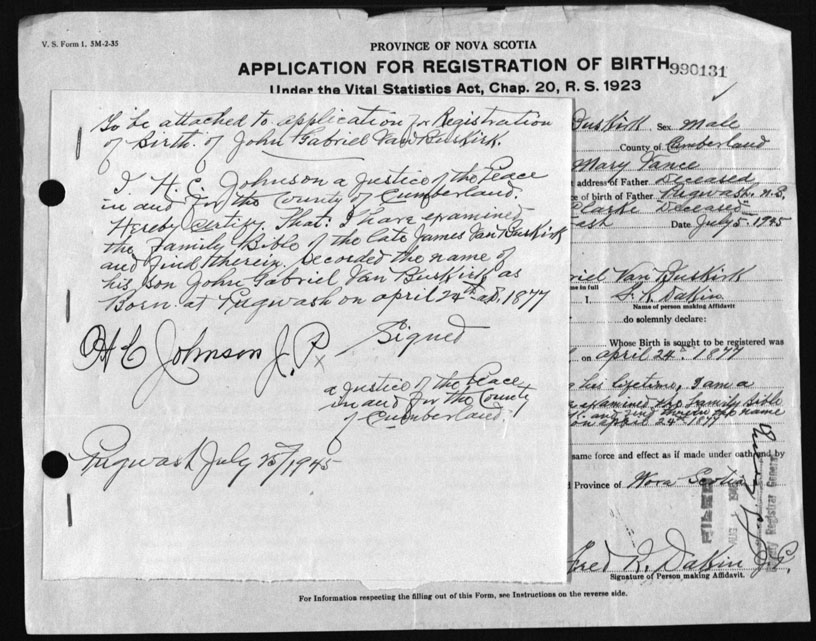 V. S. Form 1, 5M-2-35
PROVINCE OF NOVA SCOTIA
APPLICATION FOR REGISTRATION OF BIRTH
990131
Under the Vital Statistics Act, Chap. 20, R. S. 1923
To be attached to application for Registration
of Birth of John Gabriel Van Buskirk.
I H. C. Johnson a Justice of the Peace
in and for the County of Cumberland.
Hereby Certify. That. I have examined
the Family Bible of the late James Van Buskirk
and find therein recorded the name of
his son John Gabriel Van Buskirk as
Born at Pugwash on april 24th 1877
Signed
H C Johnson J. P.
a Justice of the Peace
in and for the County
of Cumberland.
Pugwash July 25/1945
Buskirk Sex Male
County of Cumberland
Mary Vance
address of Father Deceased
e of birth of Father Pugwash N.S.
Clarke Deceased
Date July 5-1945
riel Van Buskirk
me in full
I, F. R. Dakin
Name of person making Affidavit
do solemnly declare:
Whose Birth is sought to be registered was
on april 24th 1877
his lifetime, I am a
examined the Family Bible
and find therein the name
on april 24th 1877
same force and effect as if made under oath and by
d Province of Nova Scotia
FILED
Deputy Registrar General
Fred R. Dakin J.P.
Signature of Person making Affidavit.
For Information respecting the filling out of this Form, see Instructions on the reverse side.